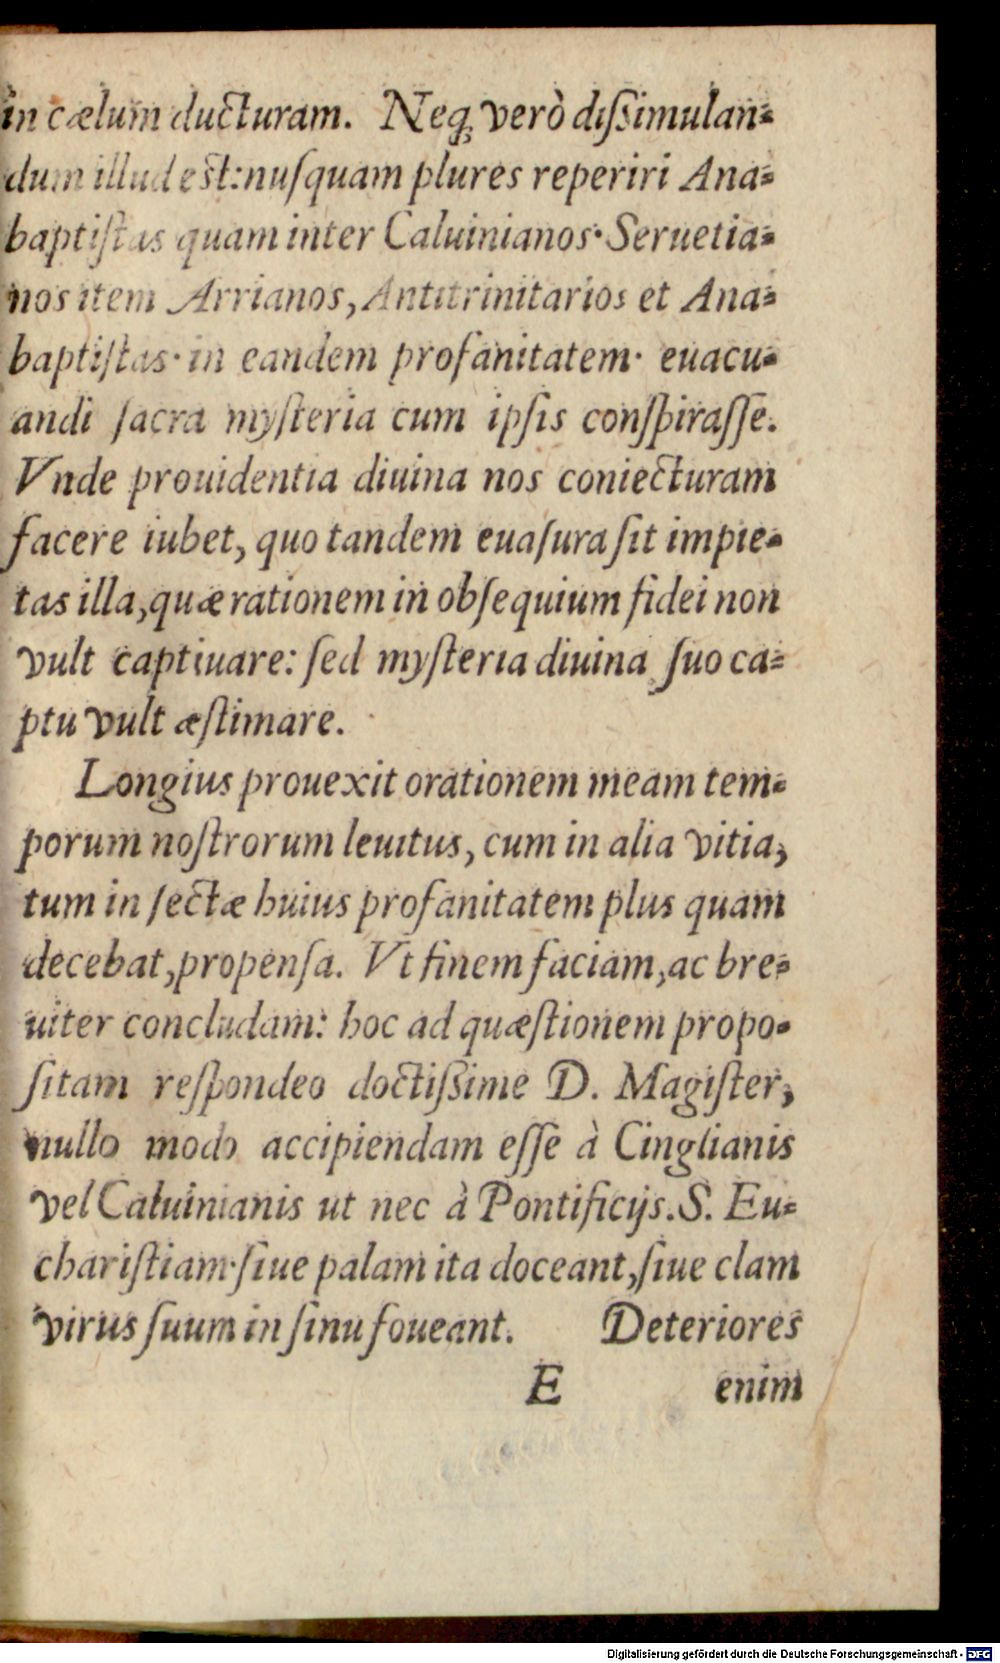 in cælum ducturam. Neq; verò dißimulan-
dum illud est: nuſquam plures reperiri Ana-
baptiſtas quam inter Caluinianos· Seruetia-
nos item Arrianos, Antitrinitarios et Ana-
baptiſtas· in eandem profanitatem· euacu-
andi ſacra myſteria cum ipſis conſpiraſſe.
Vnde prouidentia diuina nos coniecturam
facere iubet, quo tandem euaſura ſit impie-
tas illa, quæ rationem in obſequium fidei non
vult captiuare: ſed myſteria diuina ſuo ca-
ptu vult æſtimare.
Longius prouexit orationem meam tem-
porum noſtrorum leuitus, cum in alia vitia,
tum in ſectæ huius profanitatem plus quam
decebat, propenſa. Vt finem faciam, ac bre-
uiter concludam: hoc ad quæſtionem propo-
ſitam reſpondeo doctißime D. Magiſter,
nullo modo accipiendam eſſe à Cinglianis
vel Caluinianis ut nec à Pontificijs. S. Eu-
chariſtiam· ſiue palam ita doceant, ſiue clam
virus ſuum in ſinu foueant. Deteriores
E enim
Digitalisierung gefördert durch die Deutsche Forschungsgemeinschaft - DFG